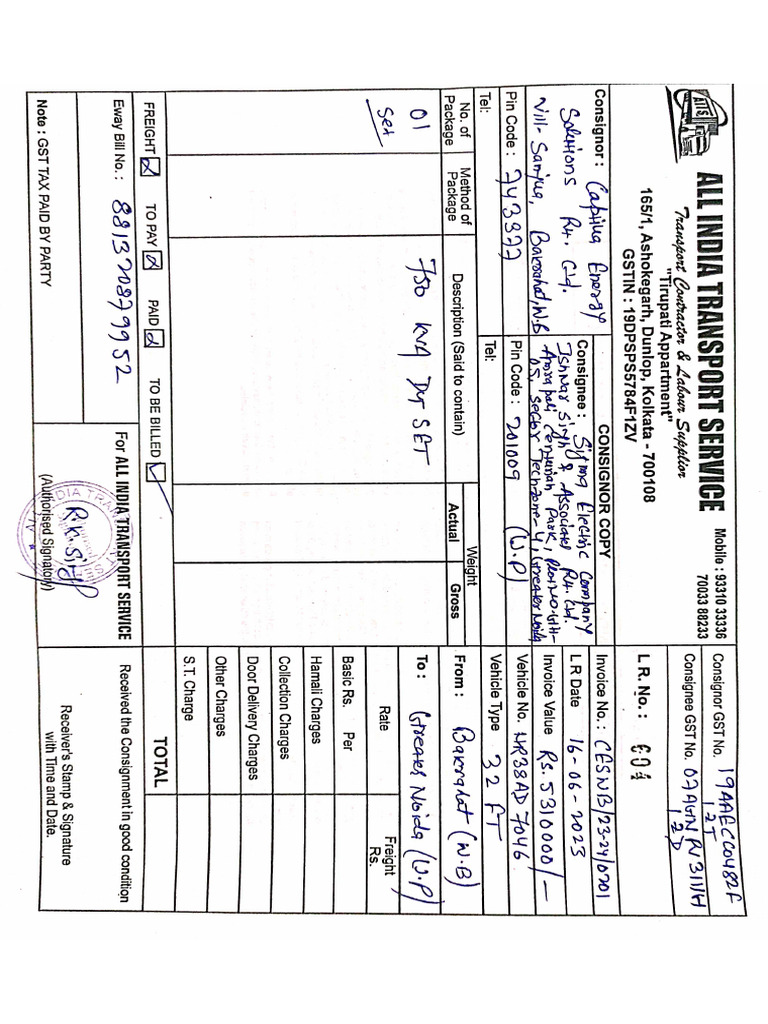 ALL INDIA TRANSPORT SERVICE
Mobile : 93310 33336
70033 88233
Transport Contractor & Labour Supplier
"Tirupati Appartment"
165/1, Ashokegarh, Dunlop, Kolkata - 700108
GSTIN : 19DPSPS5784F1ZV
AITS
Consignor GST No. 19AAECC0482F
1ZT
Consignee GST No. 07AGNPV3111H
1ZD
CONSIGNOR COPY
L R. No. : 604
Consignor : Capiiua Energy
Solutions Pvt. Ltd.
Vill- Sanjua, Barasat, W.B
Pin Code : 743377
Tel:
Consignee : Sigma Electric Company
Ishwar Singh & Associates Pvt. Ltd.
Amrapali Centurian Park, Plot No-GH-
05, Sector Techzone-4, Greater Noida
Pin Code : 201009 (U.P)
Tel:
Invoice No. : CESNB/23-24/0201
L R Date 16-06-2023
Invoice Value Rs. 5310000/-
Vehicle No. HR38AD 7046
Vehicle Type 32 FT
No. of Package
Method of Package
Description (Said to contain)
Weight
Actual Gross
From : Barasat (W.B)
To : Greater Noida (U.P)
01
Set
750 KVA DG SET
Rate Freight Rs.
Basic Rs. Per
Hamali Charges
Collection Charges
Door Delivery Charges
Other Charges
S.T. Charge
TOTAL
FREIGHT TO PAY PAID TO BE BILLED
Eway Bill No. : 881370879952
Note : GST TAX PAID BY PARTY
For ALL INDIA TRANSPORT SERVICE
R.K. Singh
(Authorised Signatory)
Received the Consignment in good condition
Receiver's Stamp & Signature
with Time and Date.